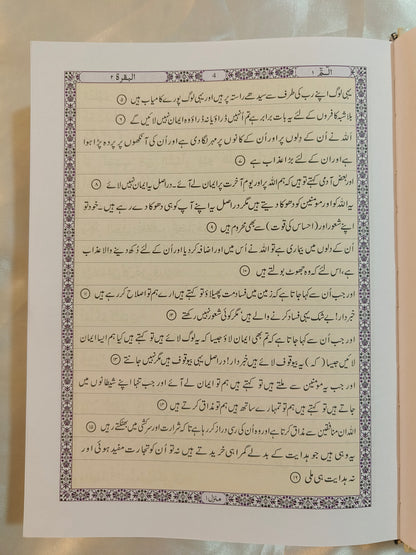 الٓمّٓ ۱ 4 البقرة ۲
یہی لوگ اپنے رب کی طرف سے سیدھے راستہ پر ہیں اور یہی لوگ پورے کامیاب ہیں ۵
بلا شبہ کافروں کے لئے یہ بات برابر ہے تم اُنہیں ڈراؤ یا نہ ڈراؤ وہ ایمان نہیں لائیں گے ۶
اللہ نے اُن کے دلوں پر اور اُن کے کانوں پر مہر لگا دی ہے اور اُن کی آنکھوں پر پردہ پڑا ہوا
ہے اور ان کے لئے بڑا عذاب ہے ۷
اور بعض آدمی کہتے تو ہیں کہ ہم اللہ پر اور یوم آخرت پر ایمان لے آئے۔ دراصل یہ ایمان نہیں لائے ۸
یہ اللہ کو اور مومنین کو دھوکا دیتے ہیں مگر دراصل یہ اپنے آپ کو ہی دھوکا دے رہے ہیں۔ خود تو
اپنے شعور اور (احساس کی قوت) سے بھی محروم ہیں ۹
اُن کے دلوں میں بیماری ہے تو اللہ نے اُس میں اور اضافہ کر دیا اور اُن کے لئے دُکھ دینے والا عذاب
ہے، اس لئے کہ وہ جھوٹ بولتے ہیں ۱۰
اور جب اُن سے کہا جاتا ہے کہ زمین میں فساد مت پھیلاؤ تو کہتے ہیں ارے ہم تو اصلاح کر رہے ہیں ۱۱
خبردار! بے شک یہی فساد کرنے والے ہیں مگر کوئی شعور نہیں رکھتے ۱۲
اور جب اُن سے کہا جاتا ہے کہ تم بھی ایمان لاؤ جیسا کہ یہ لوگ لائے ہیں تو کہتے ہیں کیا ہم ایسا ایمان
لائیں جیسا ( کہ ) یہ بیوقوف لائے ہیں خبردار! دراصل یہی بیوقوف ہیں مگر نہیں جانتے ۱۳
اور جب یہ مؤمنین سے ملتے ہیں تو کہتے ہیں ہم تو ایمان لے آئے اور جب تنہا اپنے شیطانوں میں
جاتے ہیں تو کہتے ہیں ہم تو تمہارے ساتھ ہیں ہم تو مذاق کرتے ہیں ۱۴
اللہ ان منافقین سے مذاق کرتا ہے اور وہ اُن کی رسی دراز کر رہا ہے تاکہ شرارت اور سرکشی میں بھٹکتے رہیں ۱۵
یہ وہی ہیں جو ہدایت کے بدلے گمراہی خریدتے ہیں نہ تو اُن کو تجارت مفید ہوئی اور
نہ ہدایت ہی ملی ۱۶
منزل ۱